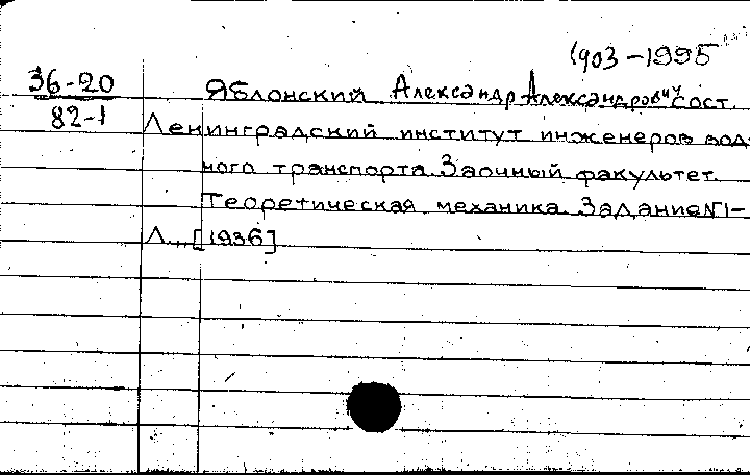 1903-1995
36-20
82-1
Яблонский Александр Александрович сост.
Ленинградский институт инженеров вод-
ного транспорта. Заочный факультет.
Теоретическая механика. Задание №1-
Л., [1936]